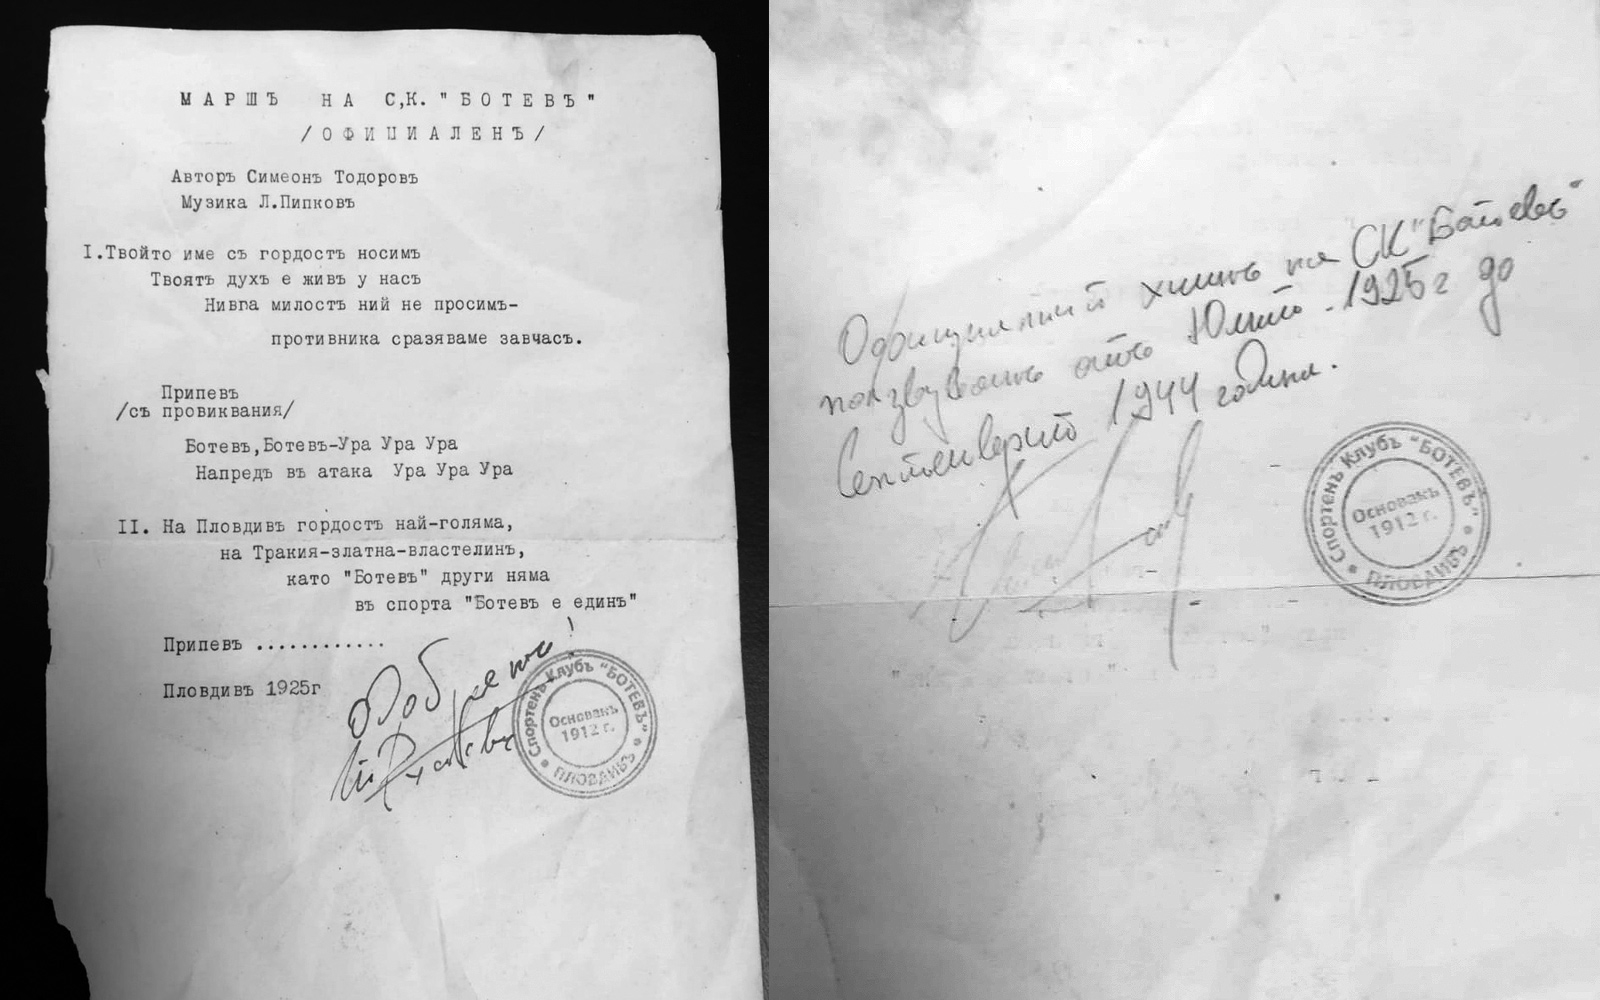 МАРШЪ НА С,К. "БОТЕВЪ"
/ОФИЦИАЛЕНЪ/
Авторъ Симеонъ Тодоровъ
Музика Л.Пипковъ
I.Твойто име съ гордость носимъ
Твоятъ духъ е живъ у насъ
Нивга милость ний не просимъ-
противника сразяваме завчасъ.
Припевъ
/съ провиквания/
Ботевъ,Ботевъ-Ура Ура Ура
Напредъ въ атака Ура Ура Ура
II. На Пловдивъ гордость най-голяма,
на Тракия-златна-властелинъ,
като "Ботевъ" други няма
въ спорта "Ботевъ е единъ"
Припевъ ............
Пловдивъ 1925г
Одобрено!
Спортенъ Клубъ "БОТЕВЪ" • ПЛОВДИВЪ •
Основанъ
1912 г.
Официалний химнъ на СК "Ботевъ"
ползвуванъ отъ Юлий - 1925 г до
Септемврий 1944 година.
Спортенъ Клубъ "БОТЕВЪ" • ПЛОВДИВЪ •
Основанъ
1912 г.